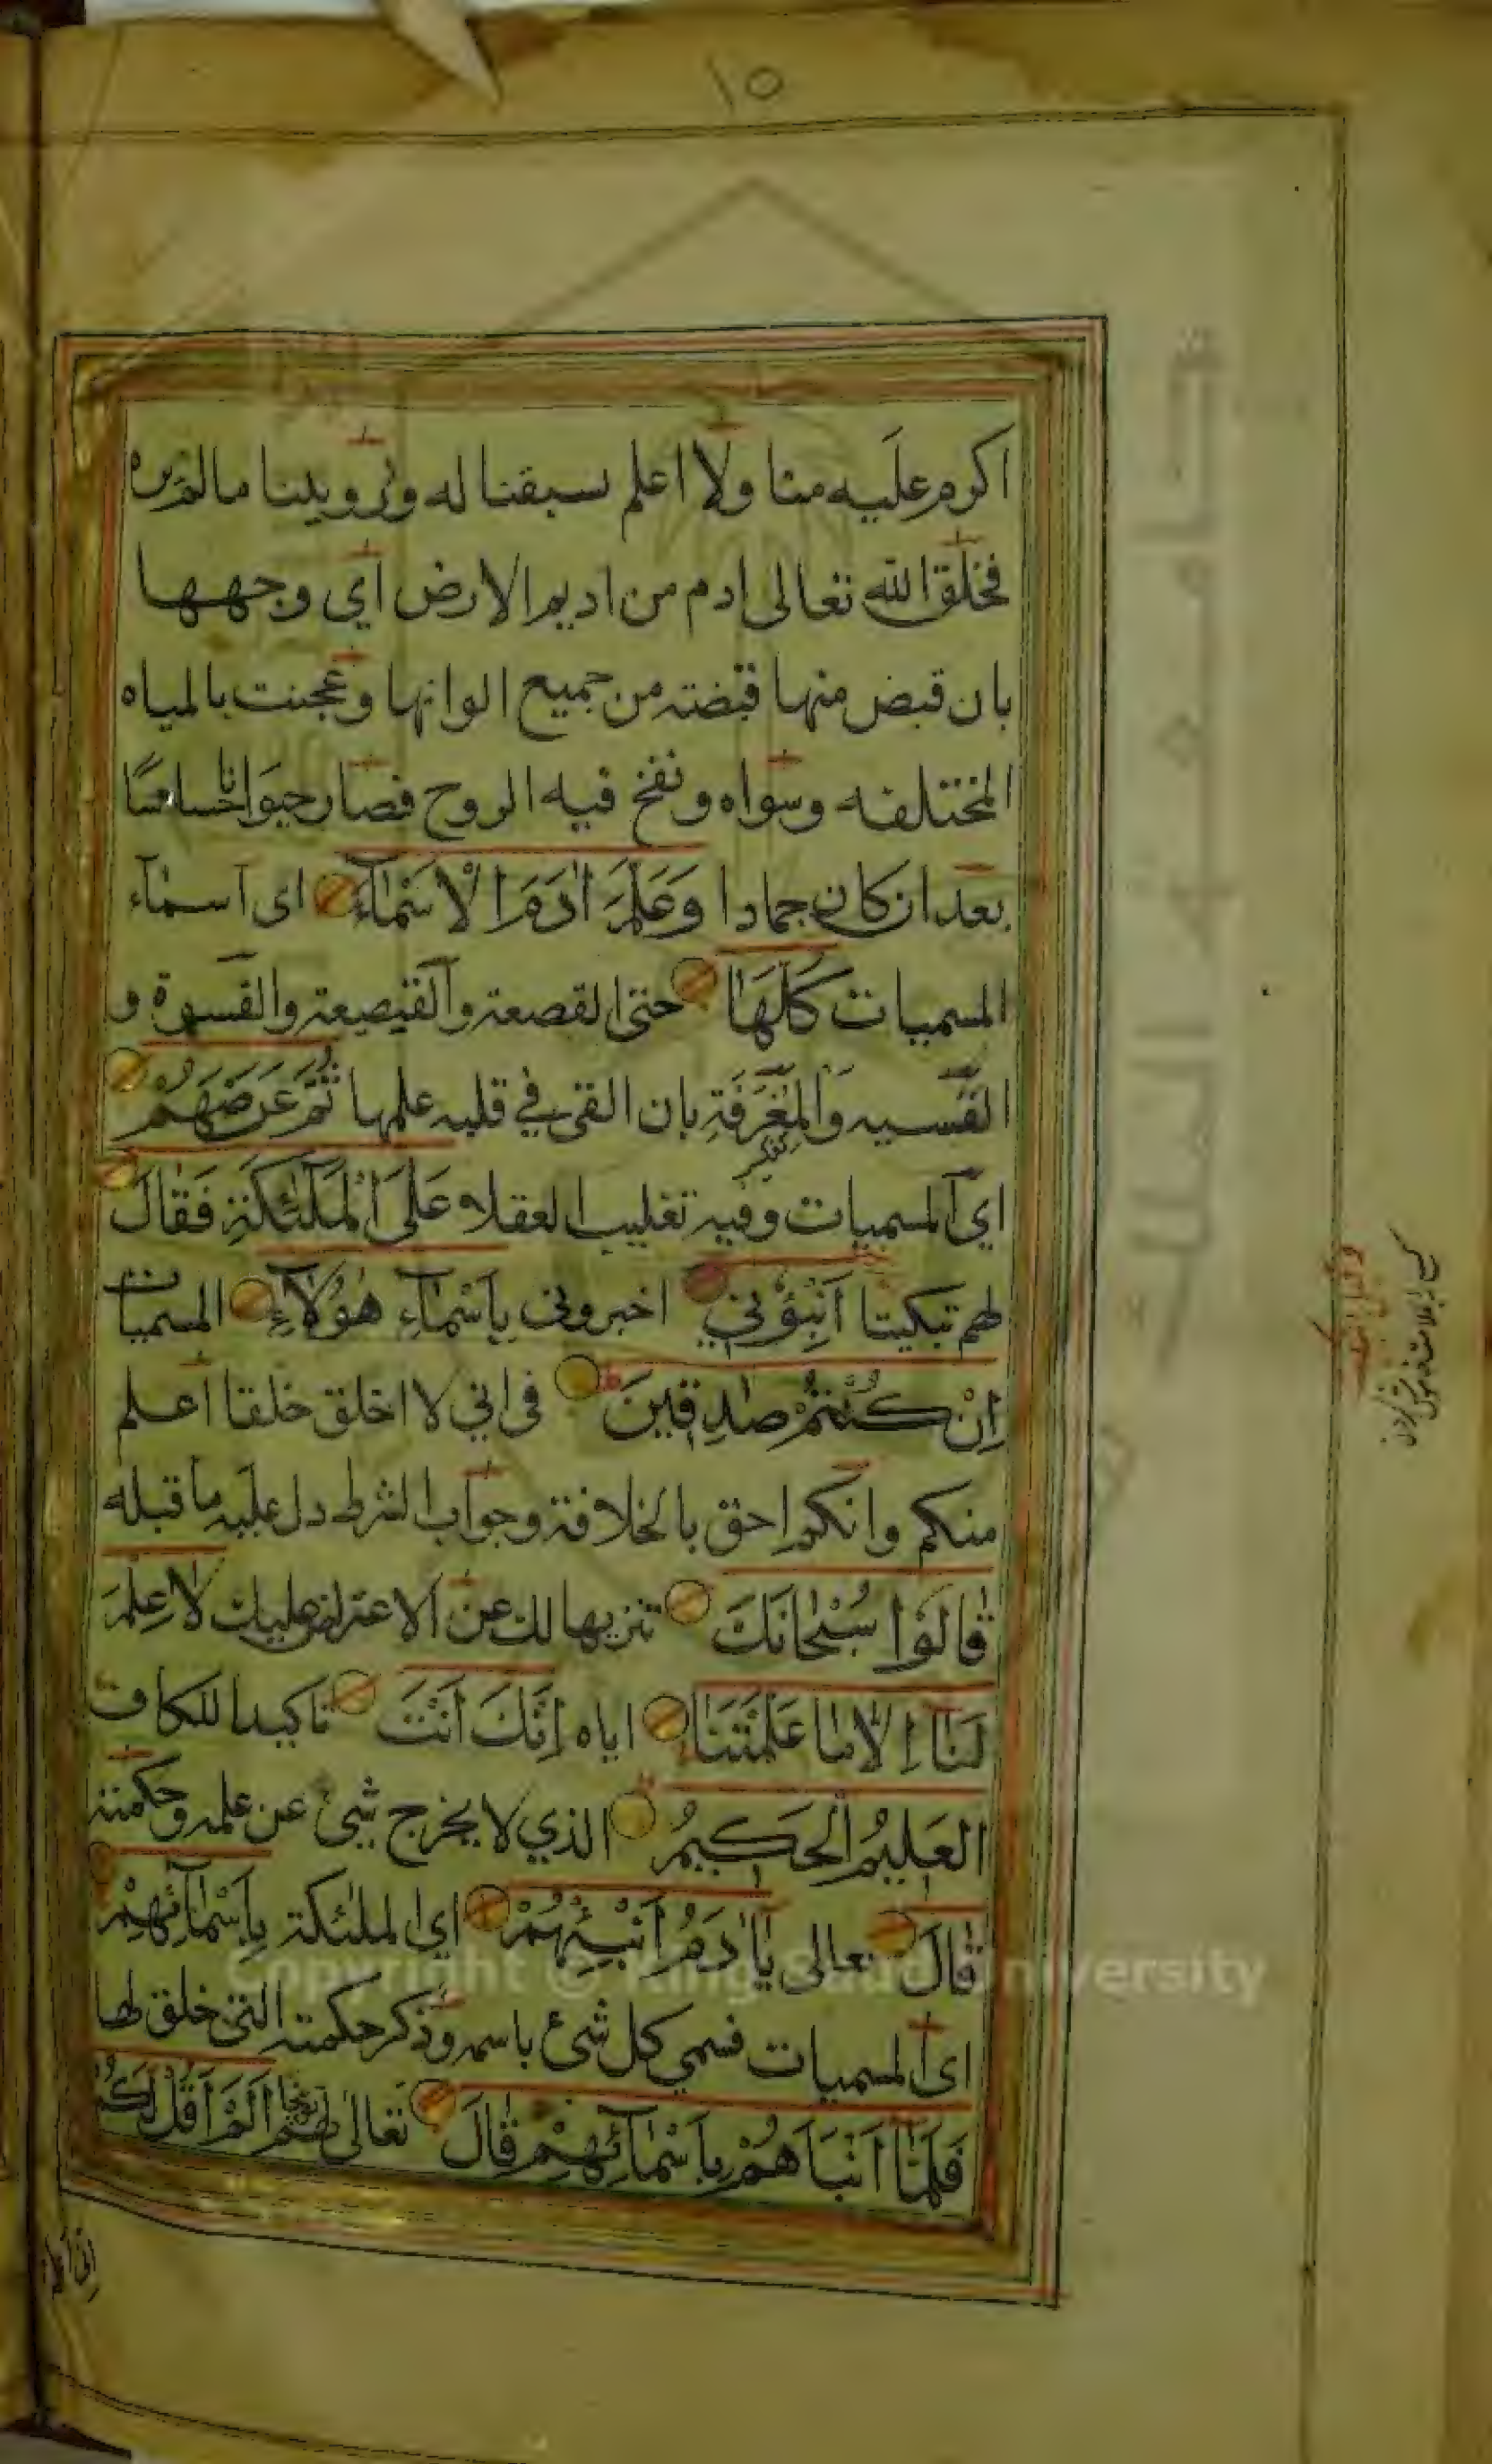 ١٥
اكرم عليه منا ولا اعلم لسبقنا له ورويتنا ما لم يره
فخلق الله تعالى ادم من اديم الارض اي وجهها
بان قبض منها قبضته من جميع الوانها وعجنت بالمياه
المختلفه وسواه ونفخ فيه الروح فصار حيوانا حساسا
بعد ان كان جمادا وَعَلَّمَ اٰدَمَ الْاَسْمَآءَ اى اسمآء
المسميات كُلَّهَا حتى القصعة والقصيعة والفسوة و
الفسيه وَالْمِغْرَفَةِ بان القى في قلبه علمها ثُمَّ عَرَضَهُمْ
اي المسميات وفيه تغليب العقلاء عَلَى الْمَلٰٓئِكَةِ فَقَالَ
لهم تبكيتا اَنْبِؤُنِي اخبرونى بِاَسْمَآءِ هٰؤُلَآءِ المسميات
اِنْ كُنْتُمْ صٰدِقِينَ فى اني لا اخلق خلقا اعلم
منكم وانكم احق بالخلافة وجواب الشرط دل عليه ما قبله
قَالُوْا سُبْحَانَكَ تنزيها لك عن الاعتراض عليك لَا عِلْمَ
لَنَا اِلَّا مَا عَلَّمْتَنَا اياه اِنَّكَ اَنْتَ تاكيدا للكاف
العَلِيْمُ الْحَكِيْمُ الذي لا يخرج شيئ عن علمه وحكمته
قَالَ تعالى يَاٰدَمُ اَنْبِئْهُمْ اي الملئكة بِاَسْمَآئِهِمْ
اى المسميات فسمي كل شئ باسمه وذكر حكمته التى خلق لها
فَلَمَّا اَنْبَاَهُمْ بِاَسْمَآئِهِمْ قَالَ تعالى لهم توبيخا اَلَمْ اَقُلْ لَكُمْ
اِنى اعلم
Copyright © King Saud University